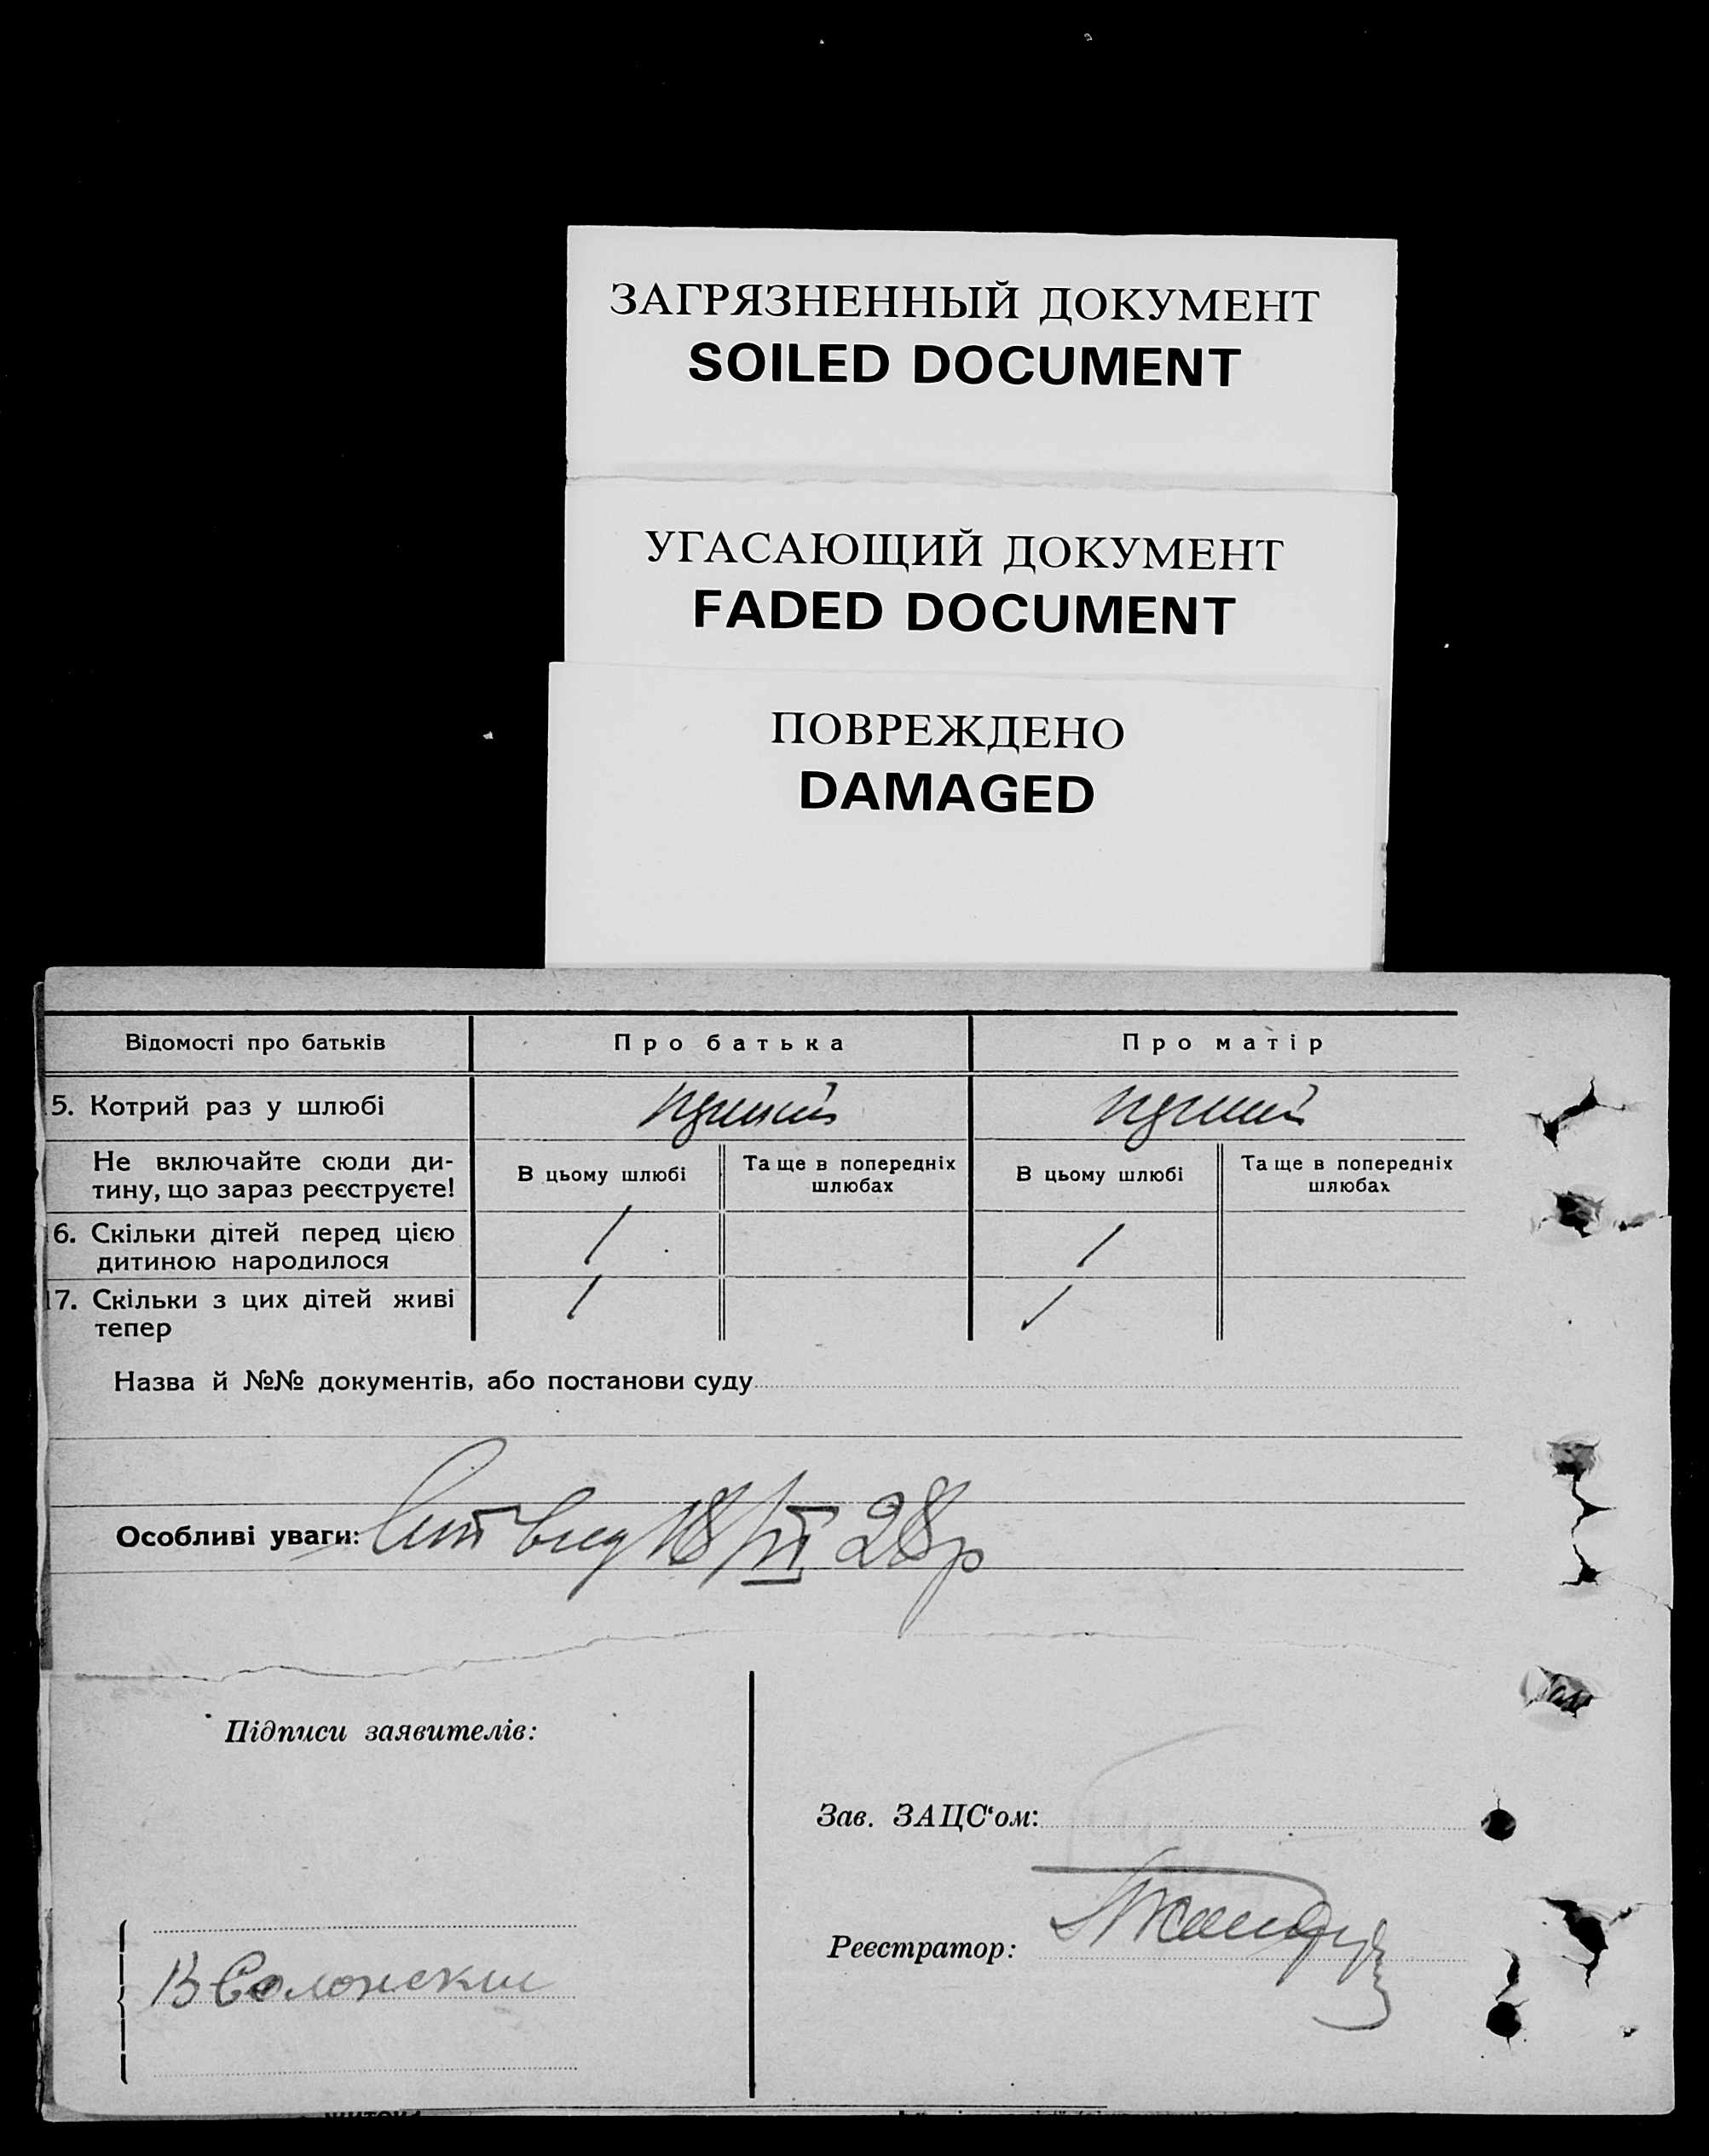 ЗАГРЯЗНЕННЫЙ ДОКУМЕНТ
SOILED DOCUMENT
УГАСАЮЩИЙ ДОКУМЕНТ
FADED DOCUMENT
ПОВРЕЖДЕНО
DAMAGED
Відомості про батьків Про батька Про матір
5. Котрий раз у шлюбі
Не включайте сюди ди-
тину, що зараз реєструєте!
В цьому шлюбі Та ще в попередніх
шлюбах
В цьому шлюбі Та ще в попередніх
шлюбах
6. Скільки дітей перед цією
дитиною народилося
/ /
7. Скільки з цих дітей живі
тепер
/ /
Назва й №№ документів, або постанови суду
Особливі уваги: 18/VI 28р
Підписи заявителів:
Зав. ЗАЦС'ом:
Реєстратор:
В Солонский